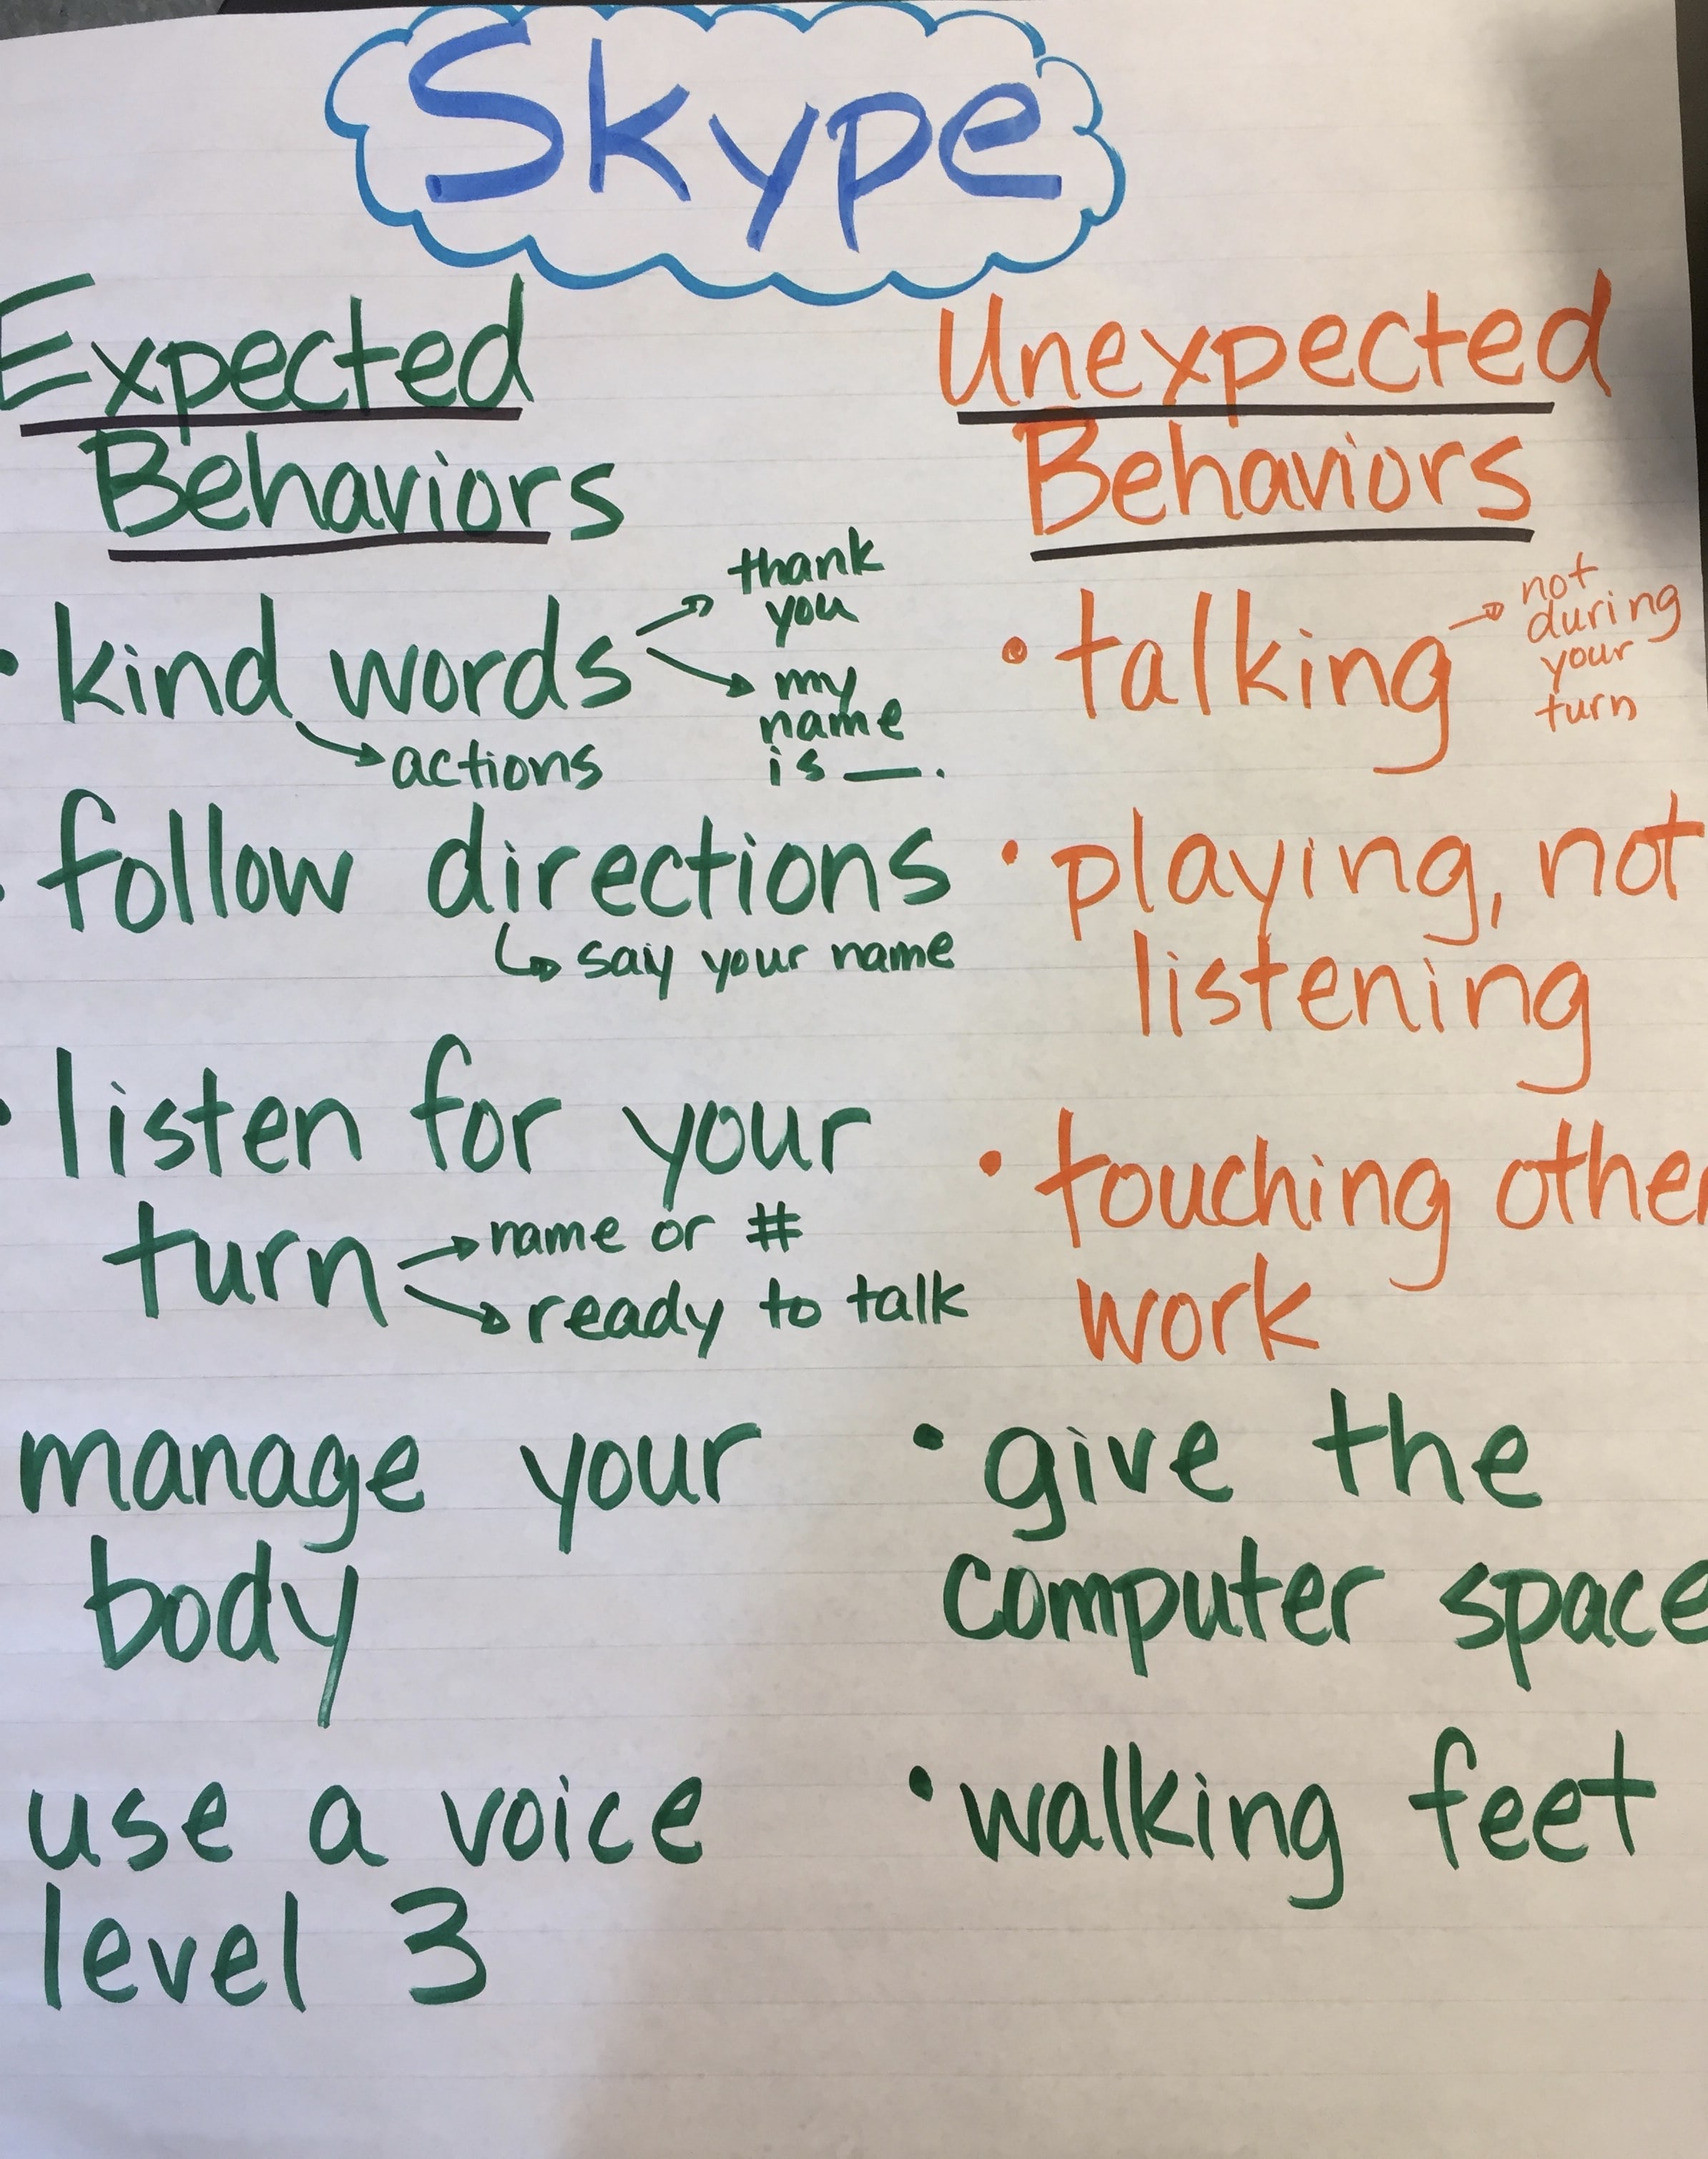 Skype
Expected
Behaviors
• kind words
thank
you
my
name
is __.
actions
• follow directions
say your name
• listen for your
turn
name or #
ready to talk
manage your
body
use a voice
level 3
Unexpected
Behaviors
• talking
not
during
your
turn
• playing, not
listening
• touching other
work
• give the
computer space
• walking feet